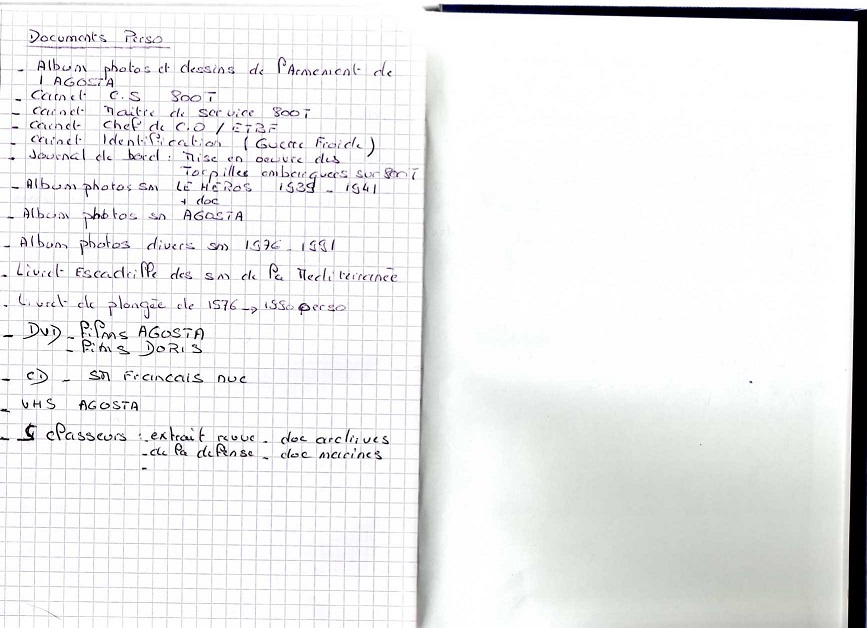 Documents Perso
- Album photos et dessins de l'Armement de
l AGOSTA
- Carnet C.S 800T
- Carnet Maitre de service 800T
- Carnet Chef de C.O / ETBF
- Carnet Identification (Guerre Froide)
- Journal de bord : Mise en oeuvre des
Torpilles embarquées sur 800T
- Album photos sm LE HEROS 1939 - 1941
+ doc
- Album photos sm AGOSTA
- Album photos divers sm 1976 - 1991
- Livret Escadrille des sm de la Mediterranée
- Livret de plongée de 1976 → 1990 perso
- DVD - films AGOSTA
- films DORIS
- CD - SM Francais nuc
- VHS AGOSTA
- 5 classeurs : - extrait revue - doc archives
- de la defense - doc marines
-